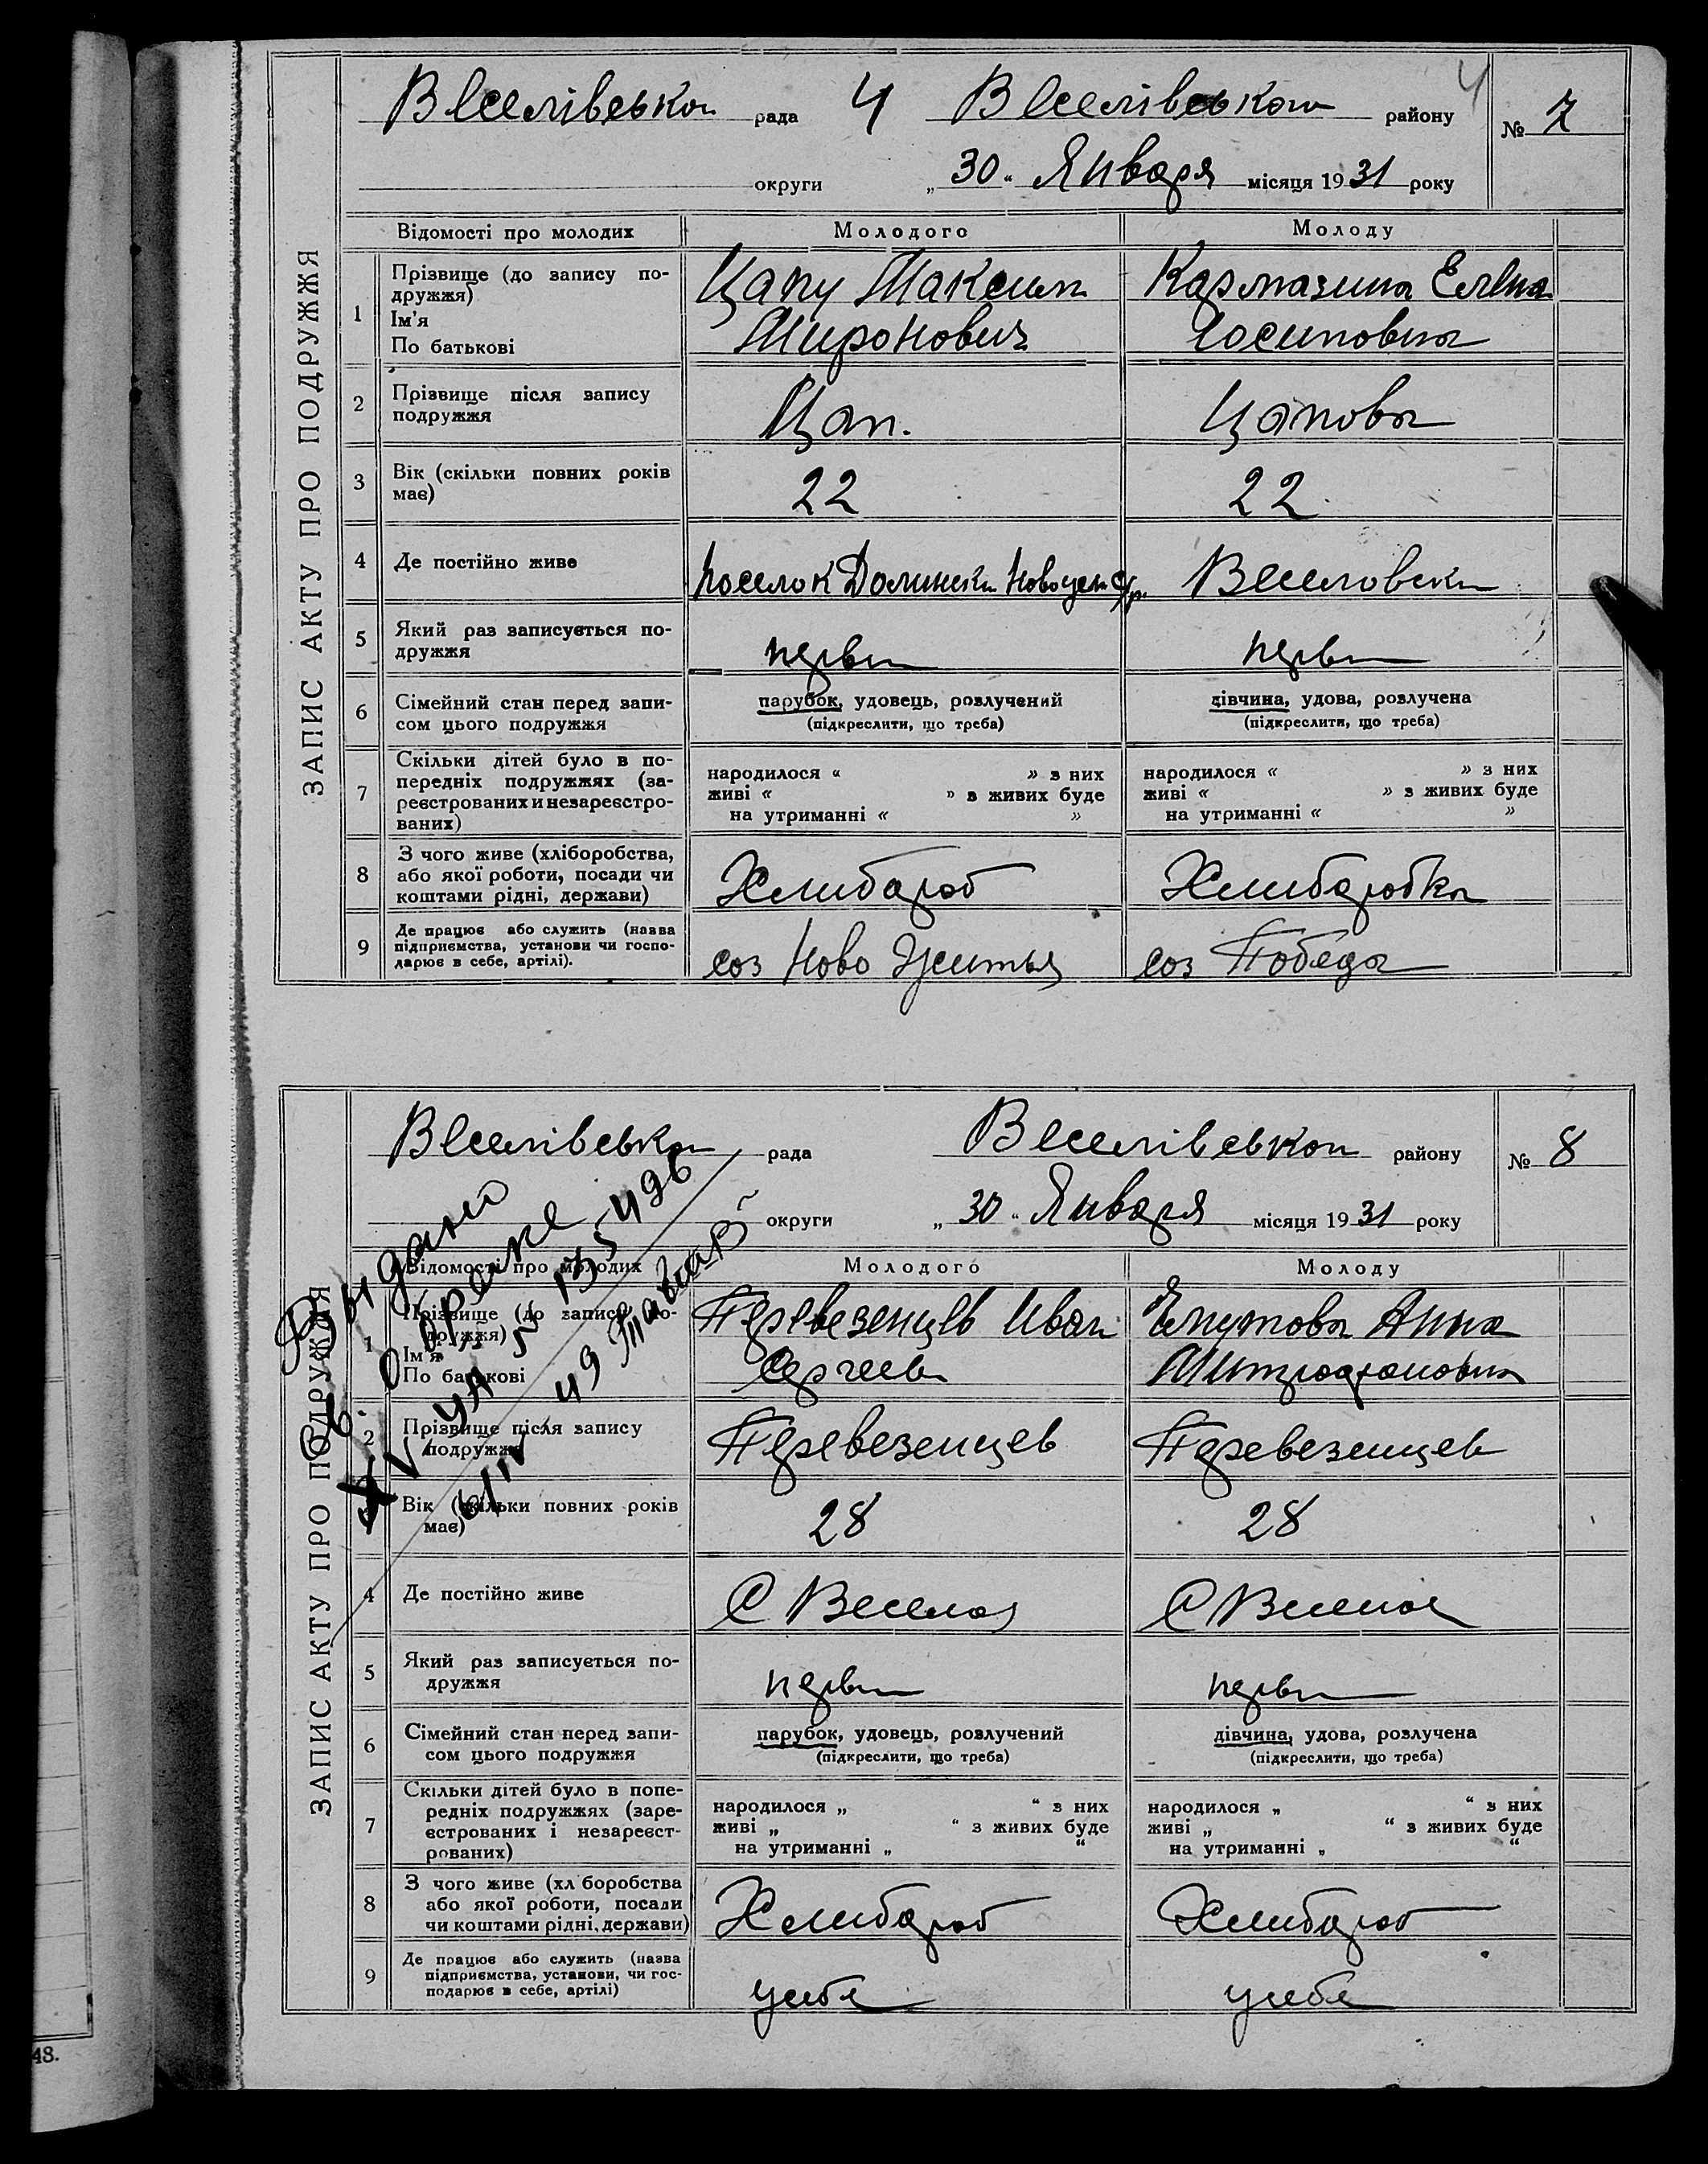 ЗАПИС АКТУ ПРО ПОДРУЖЖЯ
Веселівської рада 4 Веселівського району 4 № 7
округи „30“ Января місяця 1931 року
Відомості про молодих Молодого Молоду
1 Прізвище (до запису по-
дружжя)
Ім'я
По батькові
Цапу Максим
Миронович
Кармазина Елена
Иосиповна
2 Прізвище після запису
подружжя
Цап.
Цапова
3 Вік (скільки повних років
має)
22 22
4 Де постійно живе
поселок Долински
Веселовски
5 Який раз записується по-
дружжя
первы первы
6 Сімейний стан перед запи-
сом цього подружжя
парубок, удовець, розлучений
(підкреслити, що треба)
дівчина, удова, розлучена
(підкреслити, що треба)
7 Скільки дітей було в по-
передніх подружжях (за-
реєстрованих и незареєстро-
ваних)
народилося « » з них
живі « » з живих буде
на утриманні « »
народилося « » з них
живі « » з живих буде
на утриманні « »
8 З чого живе (хліборобства,
або якої роботи, посади чи
коштами рідні, держави)
Хлибороб Хлиборобка
9 Де працює або служить (назва
підприємства, установи чи госпо-
дарює в себе, артілі).
соз Ново Житья соз Победа
ЗАПИС АКТУ ПРО ПОДРУЖЖЯ
Веселівської рада Веселівського району № 8
округи „30“ Января місяця 1931 року
Выдано
св. о браке
XV УА № 135496
6/IV 49
Відомості про молодих Молодого Молоду
1 Прізвище (до запису по-
дружжя)
Ім'я
По батькові
Перевезенцев Иван
Сергеев
Епутова Анна
Митрофановна
2 Прізвище після запису
подружжя
Перевезенцев Перевезенцев
3 Вік (скільки повних років
має)
28 28
4 Де постійно живе
С Веселоя С Веселоя
5 Який раз записується по-
дружжя
первы первы
6 Сімейний стан перед запи-
сом цього подружжя
парубок, удовець, розлучений
(підкреслити, що треба)
дівчина, удова, розлучена
(підкреслити, що треба)
7 Скільки дітей було в попе-
редніх подружжях (заре-
єстрованих і незареєст-
рованих)
народилося „ “ з них
живі „ “ з живих буде
на утриманні „ “
народилося „ “ з них
живі „ “ з живих буде
на утриманні „ “
8 З чого живе (хл боробства
або якої роботи, посади
чи коштами рідні, держави)
Хлибороб Хлибороб
9 Де працює або служить (назва
підприємства, установи, чи гос-
подарює в себе, артілі)
усебе усебе
48.